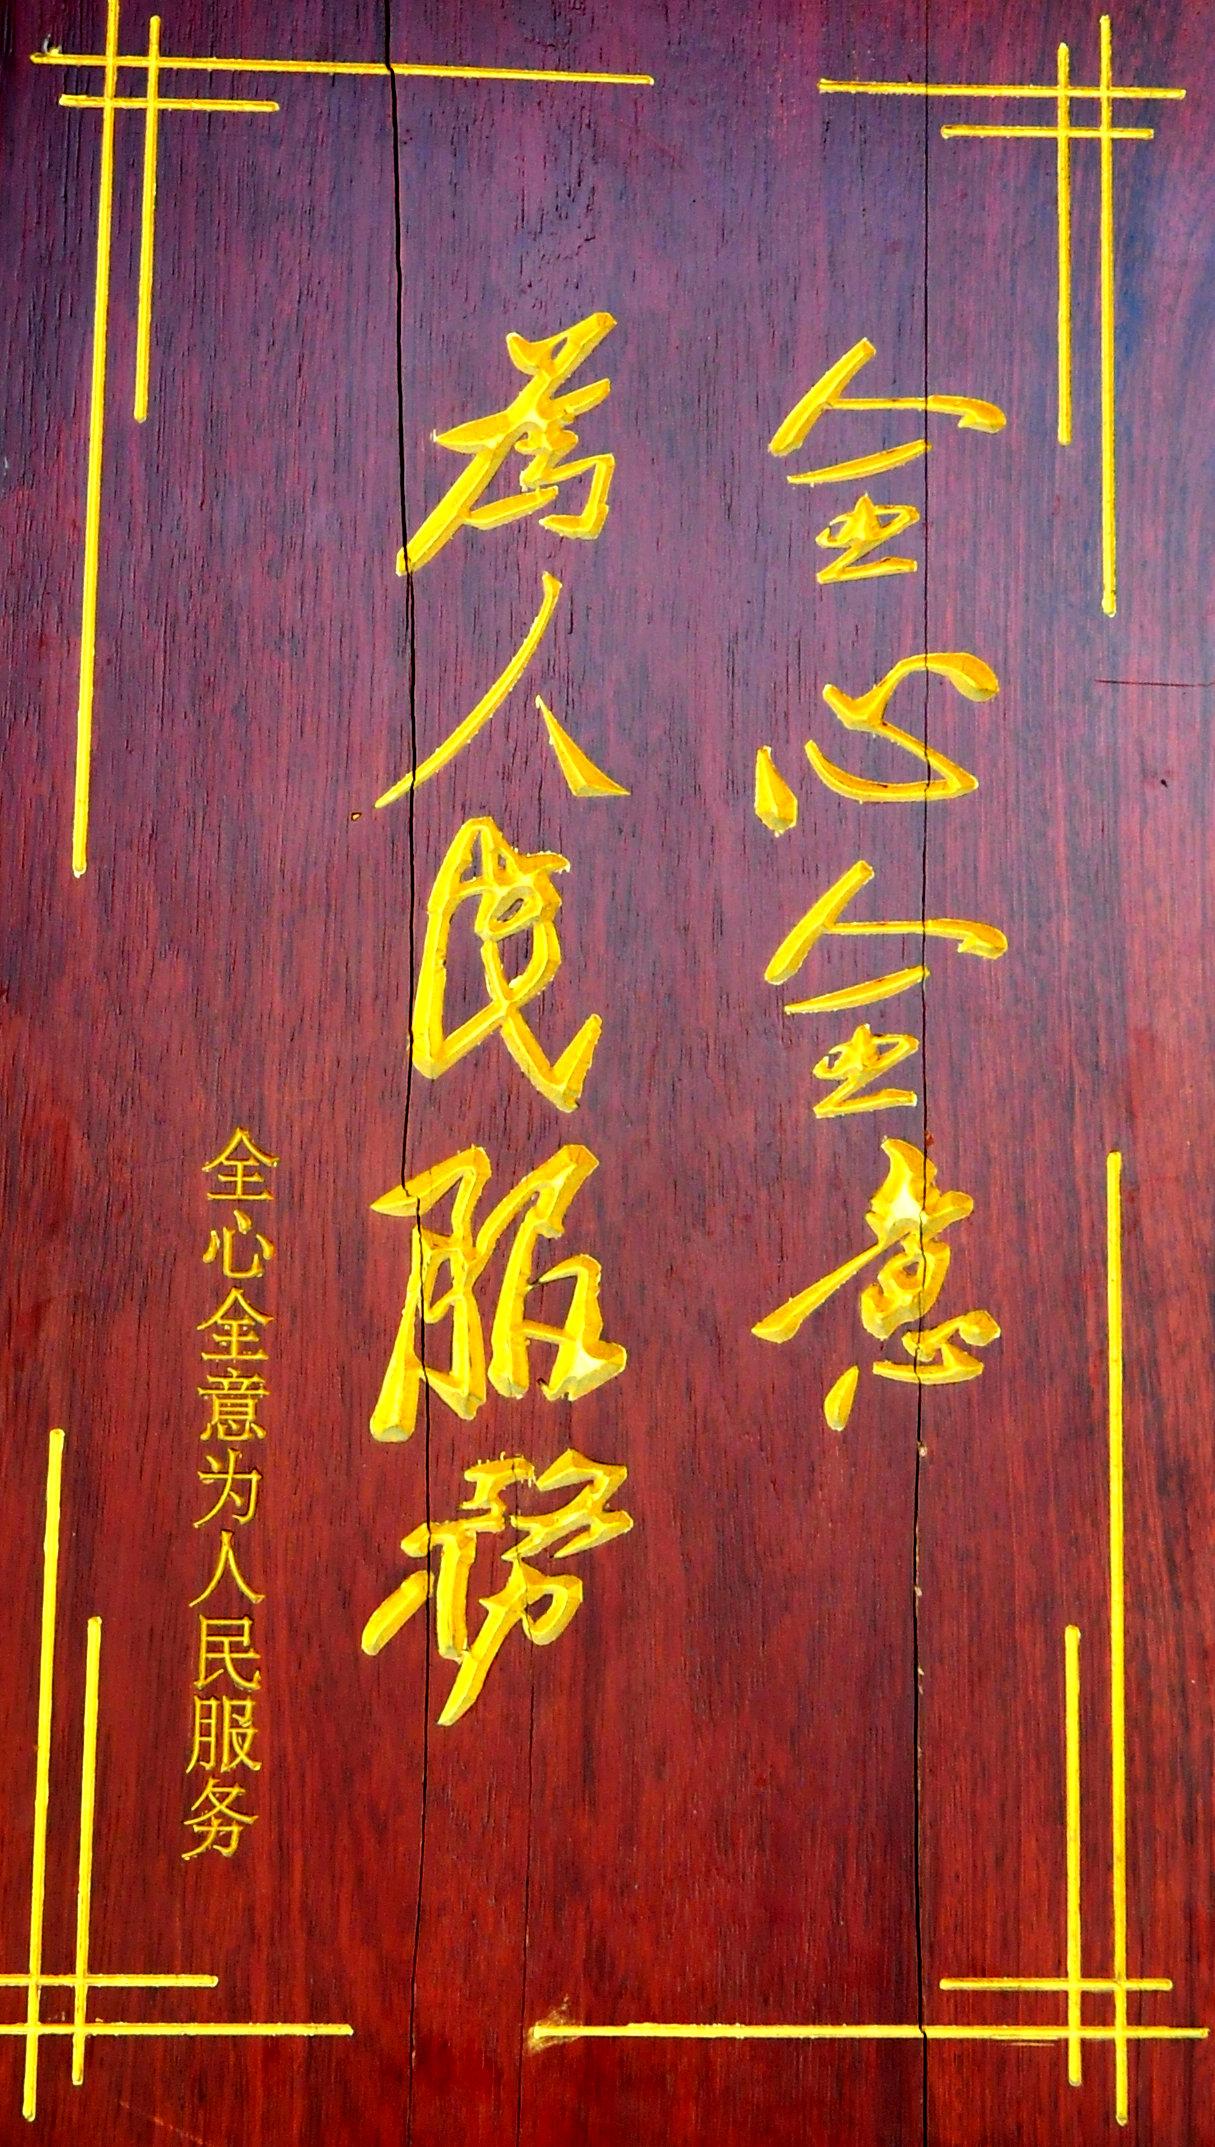 全心全意
為人民服務
全心全意为人民服务